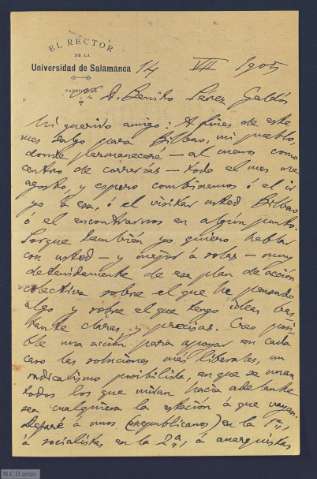 EL RECTOR
DE LA
Universidad de Salamanca
14 VII 1905
Sr. D. Benito Pérez Galdós
Mi querido amigo: A fines de este
mes salgo para Bilbao, mi pueblo,
donde permaneceré — al menos como
centro de correrías — todo el mes de
agosto, y espero combinemos ó el ir
yo á esa, ó el visitar usted Bilbao
ó el encontrarnos en algún punto.
Porque también yo quiero hablar
con usted — y mejor á solas — muy
detenidamente de ese plan de acción
colectiva sobre el que he pensado
algo y sobre el que tengo ideas bas
tante claras y precisas. Creo posi
ble una acción para apoyar en cada
caso las soluciones más liberales, un
radicalismo posibilista, en que se unan
todos los que miran hacia adelante
sea cualquiera la estación á que vayan.
Dejaré á unos (republicanos) en la 1ª,
á socialistas en la 2ª, á anarquistas